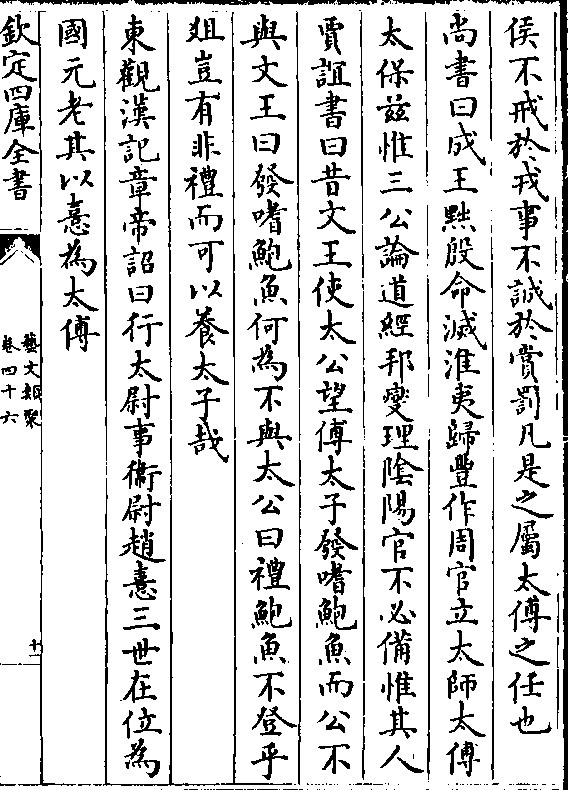 侯不戒於戎事不誠於賞罰凡是之屬太傅之任也
尚書曰成王黜殷命滅淮夷歸豐作周官立太師太傅
太保兹惟三公論道經邦燮理隂陽官不必備惟其人
賈誼書曰昔文王使太公望傅太子發嗜鮑魚而公不
與文王曰發嗜鮑魚何為不與太公曰禮鮑魚不登乎
俎豈有非禮而可以養太子哉
東觀漢記章帝詔曰行太尉事衛尉趙憙三世在位為
國元老其以憙為太傅
欽定四庫全書
藝文類聚
卷四十六
十一